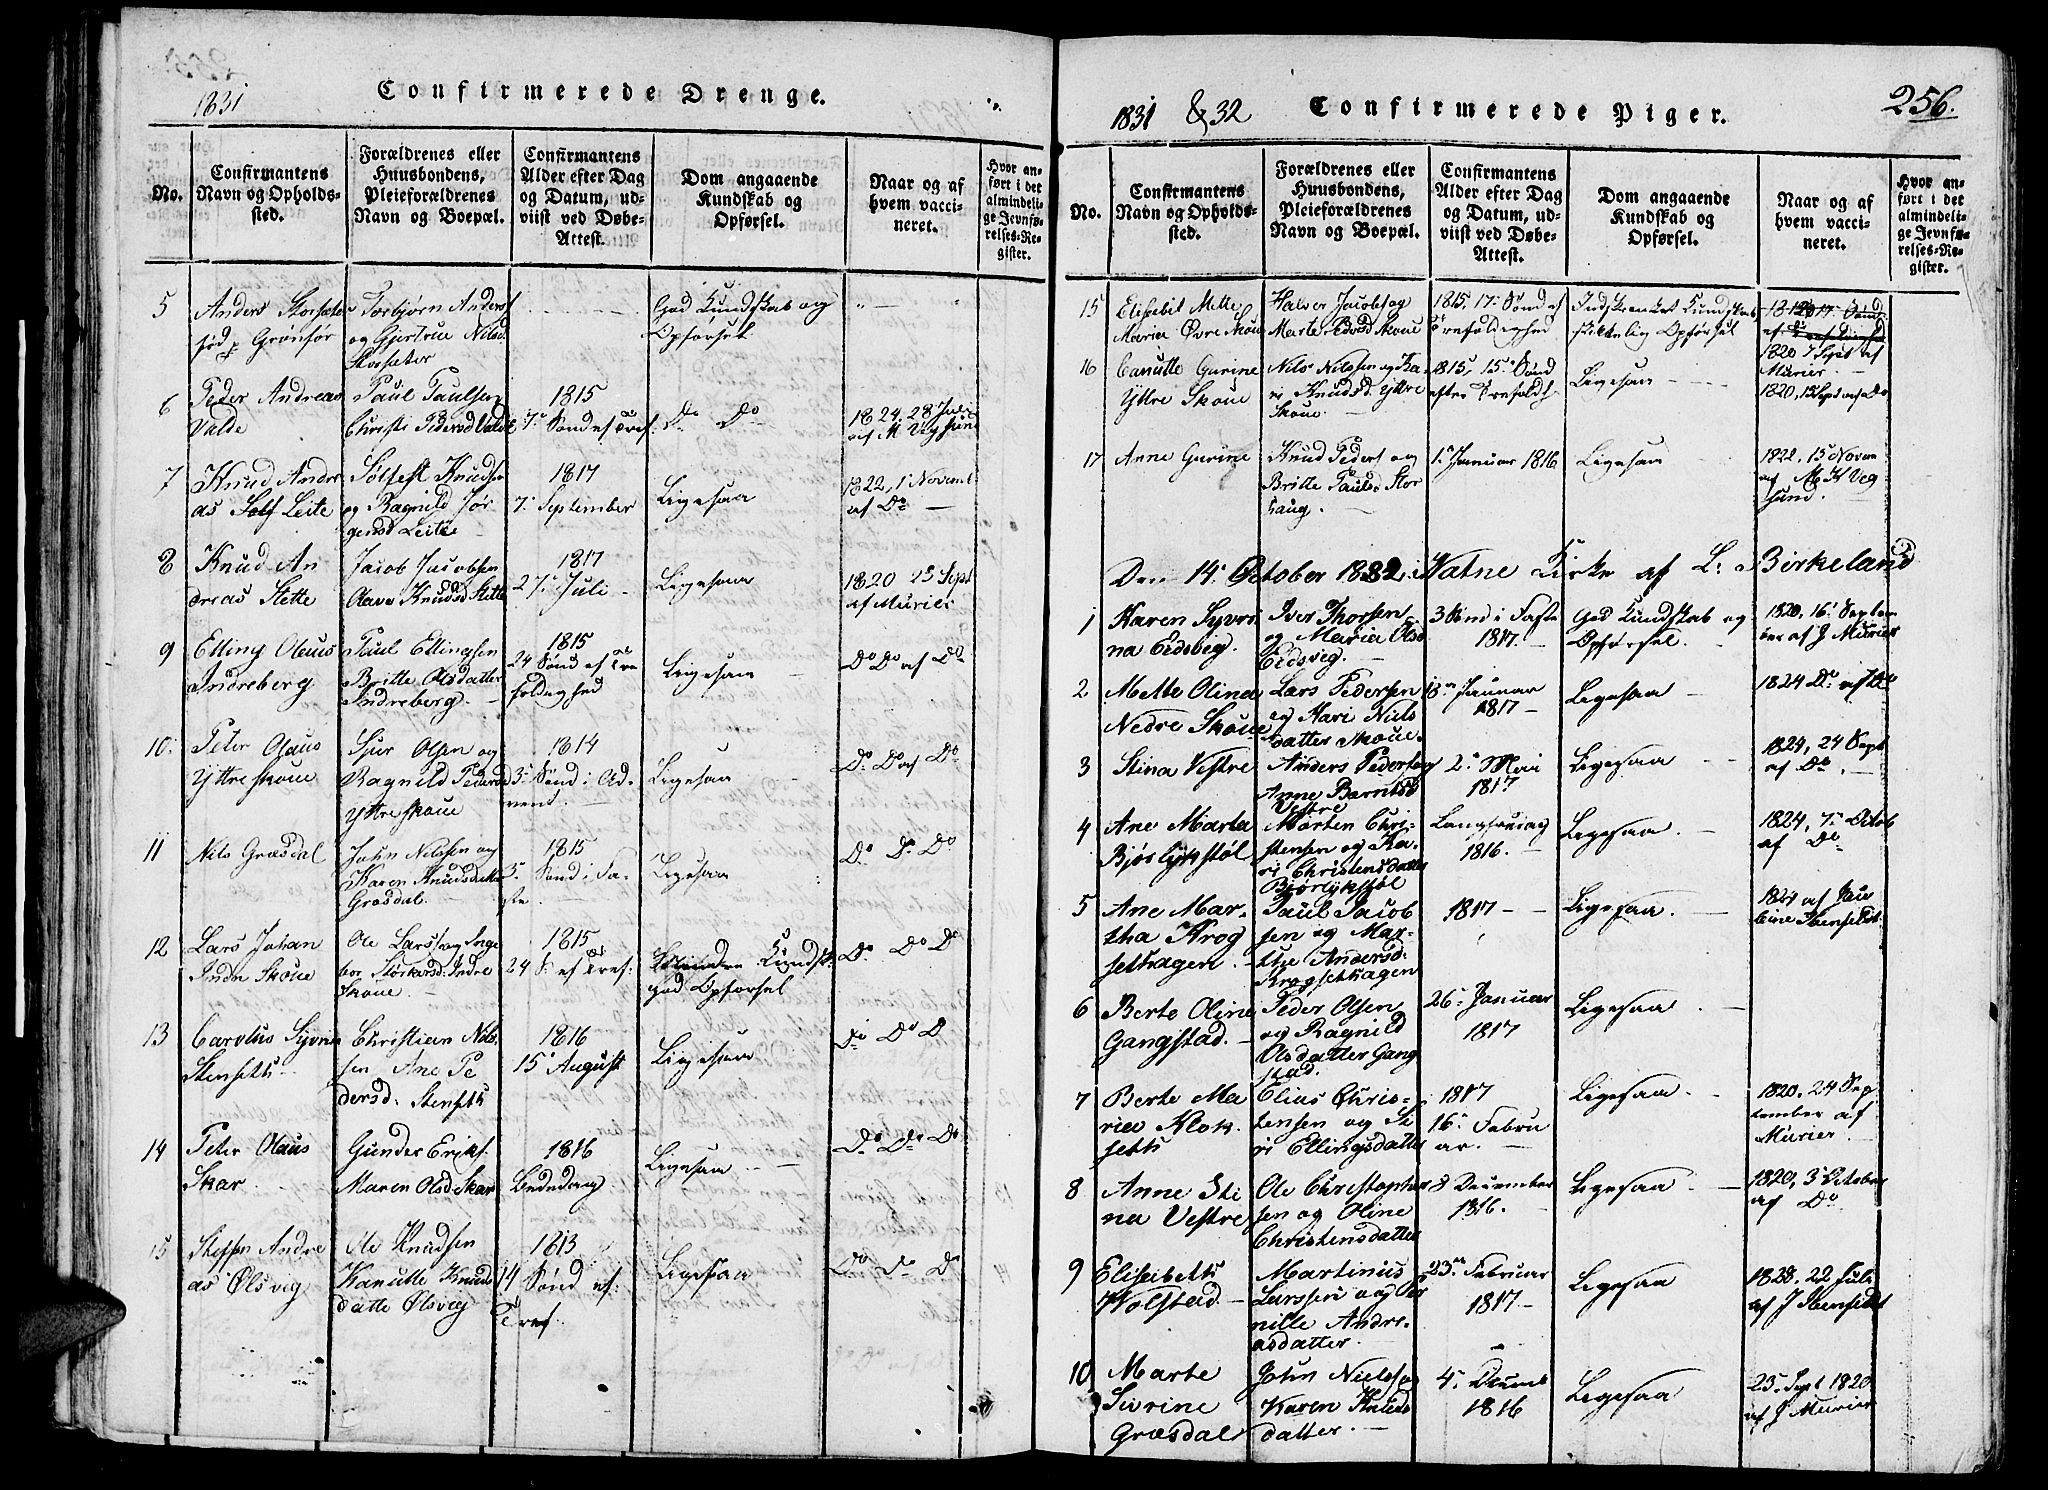 1831
Confirmerede Drenge.
No.
Confirmantens
Navn og Opholds-
sted.
Forældrenes eller
Huusbondens,
Pleieforældrenes
Navn og Boepæl.
Confirmantens
Alder efter Dag
og Datum, ud-
viist ved Døbe-
Attest.
Dom angaaende
Kundskab og
Opførsel.
Naar og af
hvem vacci-
neret.
Hvor an-
ført i det
almindeli-
ge Jevnfø-
relses-Re-
gister.
5
Anders Storsæter
fød p Grønfør
Torbjørn Anders
og Gjertrue Nilsd
Storsæter
God Kundskab og
Opførsel
6
Peder Andreas
Valde
Paul Paulsen
Christi Pedersd Valde
1815
7de Sønd ef Tref:
Do Do
1824, 28 Juli
af M Vegsund
7
Knud Andre
as Leite
Knudsen
og Ragnild Jør
gensd Leite
1817
7de September
Ligesaa
1822, 1 Novemb
af Do
8
Knud An
dreas Slette
Jacob Jacobsen
Olava Knudsd Slette
1817
27de Juli
Ligesaa
1820 23 Sept
af Murier
9
Elling Olaus
Indreberg
Paul Ellingsen
Britte Olsdatter
Indreberg.
1815
24 Sønd ef Tre
foldighed
Ligesaa
Do Do af Do
10.
Peter Olaus
Yttre Skoue
Olsen og
Ragnild Pedersd
Yttre Skoue
1814
3de Sønd i Ad-
vent.
Ligesaa
Do Do af Do
11
Nils Græsdal
John Nilssen og
Karen Knudsdatter
Græsdal.
1815
3. Sønd i Fa-
ste
Ligesaa
Do Do Do
12
Lars Johan
Indre Skoue
Ole Larss og Inge
bor Størkersd: Indre
Skoue.
1815
24 S: ef Tref:
Mindre Kundsk.
god Opførsel
Do Do Do
13
Carolus Syvrin
Stensett
Christian Nils-
sen Ane Pe
dersd: Stenseth
1816
15 August
Ligesaa
Do Do D
14
Peter Olaus
Skar
Gunder Eriks.
Maren Olsd Skar
1816
Bededag
Ligesaa
Do Do Do
15
Steffen Andre
as Ølsvig
Ole Knudsen
Kanutte Knuds
datte Ølsvig
1813
14 Sønd ef:
Tref.
Ligesaa
Do Do Do
1831 & 32
Confirmerede Piger.
256.
No.
Confirmantens
Navn og Opholds-
sted.
Forældrenes eller
Huusbondens,
Pleieforældrenes
Navn og Boepæl.
Confirmantens
Alder efter Dag
og Datum, ud-
viist ved Døbe-
Attest.
Dom angaaende
Kundskab og
Opførsel.
Naar og af
hvem vacci-
neret.
Hvor an-
ført i det
almindeli-
ge Jevnfø-
relses-Re-
gister.
15
Elisabet Mette
Maria Øvre Skoue
Halvor Jacobs og
Marte Skoue
1815 17de Sønd ef
Trefoldighed
Indskrenket Kundskab
skikkelig Opførsel
1820 7 Sept af
Murier
16
Canutte Gurine
Yttre Skoue
Nils Nilssen og Ka-
ri Knudsd. Yttre
Skoue.
1815, 15de Sønd
efter Trefoldh
Ligesaa
1820, 13 Sept af do
17
Anne Gurine
Knud Peders og
Britte Paulsd Stor
haug.
1. Januar 1816
Ligesaa
1822, 15 Novem
af M K Veg
sund.
Den 14de October 1832 i Vatne Kirke af L: Birkeland
1
Karen Syvri
na Eidsvig.
Iver Thorsen
og Maria Olsd
Eidsvig.
3 Sønd i Faste
1817.
God Kundskab og
Opførsel.
1820, 16. Septem
ber af J Murier
2
Mette Olina
Nedre Skoue
Lars Pedersen
og Kari Niels
datter Skoue.
Januar
1817
Ligesaa
1824 Do af Do
3
Stina Vestre
Anders Peders og
Anne Barntsd
Vestre
2. Mai
1817
Ligesaa
1824, 24 Sept
af Do.
4
Ane Marta
Bjørlykstøl
Morten Chri-
stensen og Ka-
ri Christensdatter
Bjørlykstøl
Langfredag
1816.
Ligesaa.
1824, 7de Octob
af Do
5
Ane Mar-
tha Krog
sethagen.
Paul Jacob
sen og Mar-
the Andersd:
Krogsethagen
1817
Ligesaa.
1824 af Jac
6
Berte Oline
Gangstad.
Peder Olsen
og Ragnild
Olsdatter Gang
stad.
26. Januar
1817
Ligesaa
7
Berte Ma
ria Klok-
seth
Elias Chris-
tensen og Si
ri Ellingsdatter
1817
16. Febru
ar.
Ligesaa.
1820, 24 Sep
tember af
Murier.
8
Anne Sti
na Vestre
Ole Christopher
sen og Oline
Christensdatter
8 December
1816.
Ligesaa
1820, 3 October
af Do
9
Elisabeth
Wolstad.
Martinus
Larssen og Per
nille Andre-
asdatter.
23de Februar
1817.
Ligesaa
1828, 22 Juli
af J Ibenfeldt
10
Marte
Sivrine
Græsdal
John Niels og
Karen Knuds
datter.
4de Decemb
1816
Ligesaa
23. Sept 1820
af J Murier